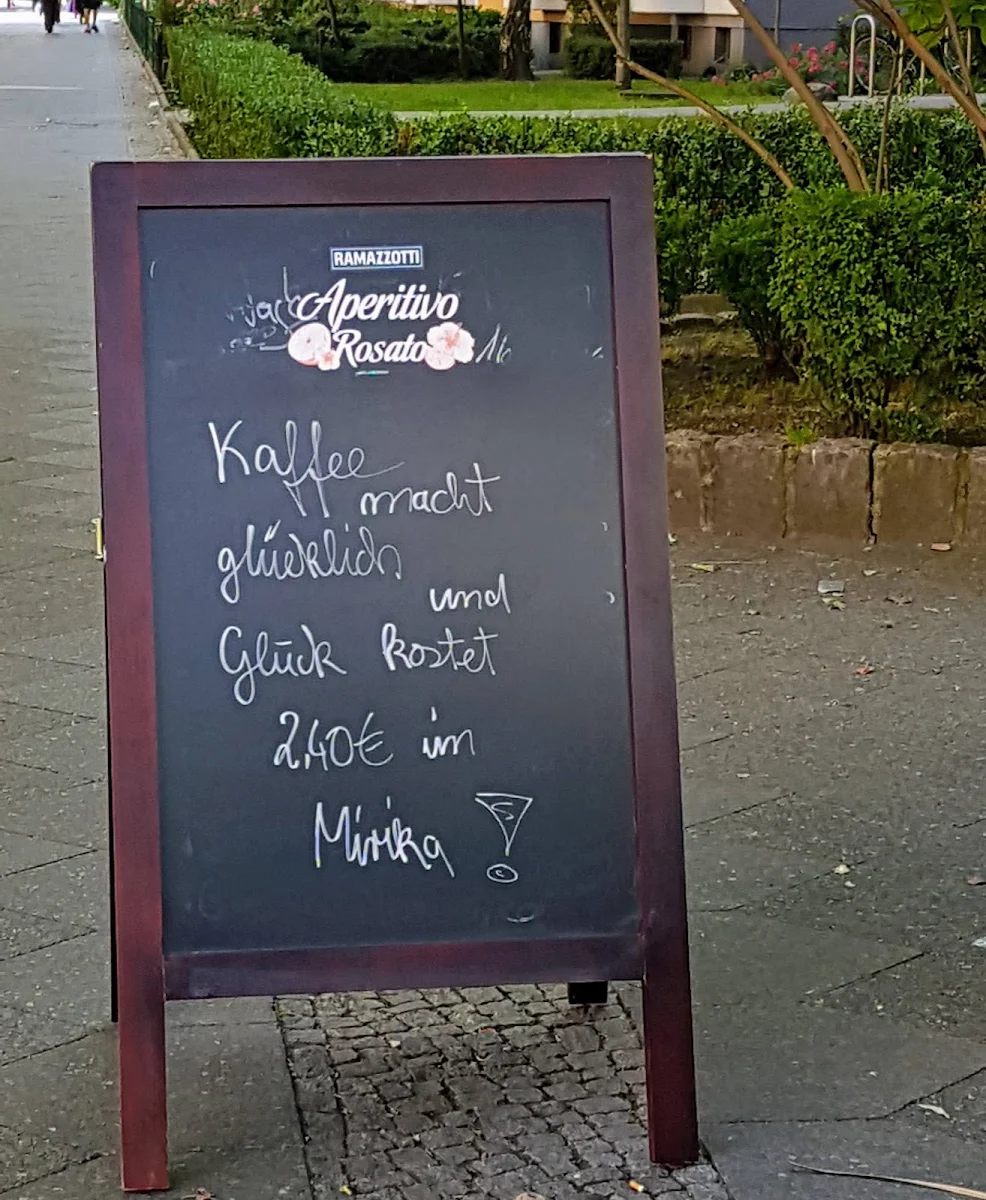 RAMAZZOTTI
Aperitivo
Rosato
Kaffee
macht
glücklich
und
Glück kostet
2,40€ im
Mirika !